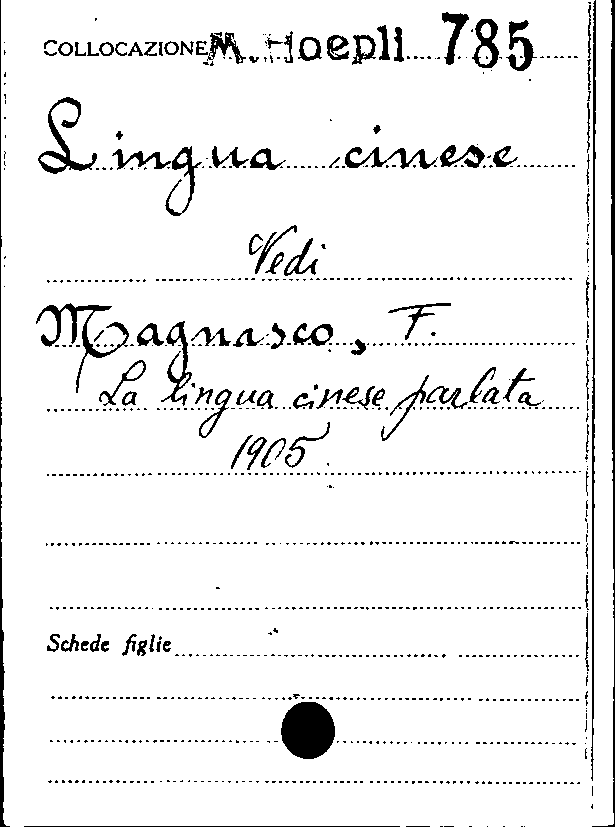 COLLOCAZIONE M. Hoepli 785
Lingua cinese
Vedi
Magnasco, F.
La lingua cinese parlata
1905
Schede figlie